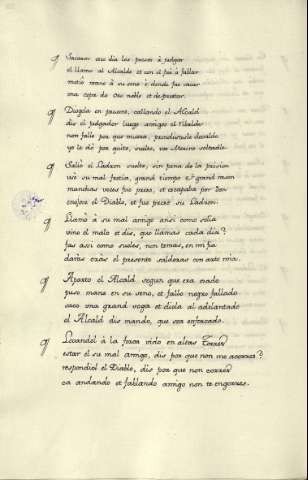 Sacaron otro dia los presos à judgar
el llamo al Alcalde et con el fuè à fallar
metiò mano à su seno è dende fue sacar
una copa de oro noble et de prestar.
Diogela en presente, callando el Alcald
dis el judgador luego amigos el Ribalde
non fallo por que muera, prendiestele de valde
yo le dò por quito, suelto, vos Merino soltadle.
Saliò el Ladron suelto, sin pena de la prision
usò su mal fecho, grand tiempo è grand sazon
muchas veces fue preso, et escapaba por don
enojose el Diablo, et fue preso su Ladron.
Llamò à su mal amigo ansi como solia
vino el malo et dis, que llamas cada dia?
fas assi como sueles, non temas, en mi fia
daràs cras el presente, saldràs con arte mia.
Apartò el Alcald segun que era usado
puso mano en su seno, et fallo negro fallado
saco una grand soga et diola al adelantado
el Alcald dis mando, que sea enforcado.
Levandol à la forca vido en altas Torres
estar el su mal amigo, dis por que non me acorres?
respondiol el Diablo, dis por que non corres
ca andando et fablando amigo non te engorres.